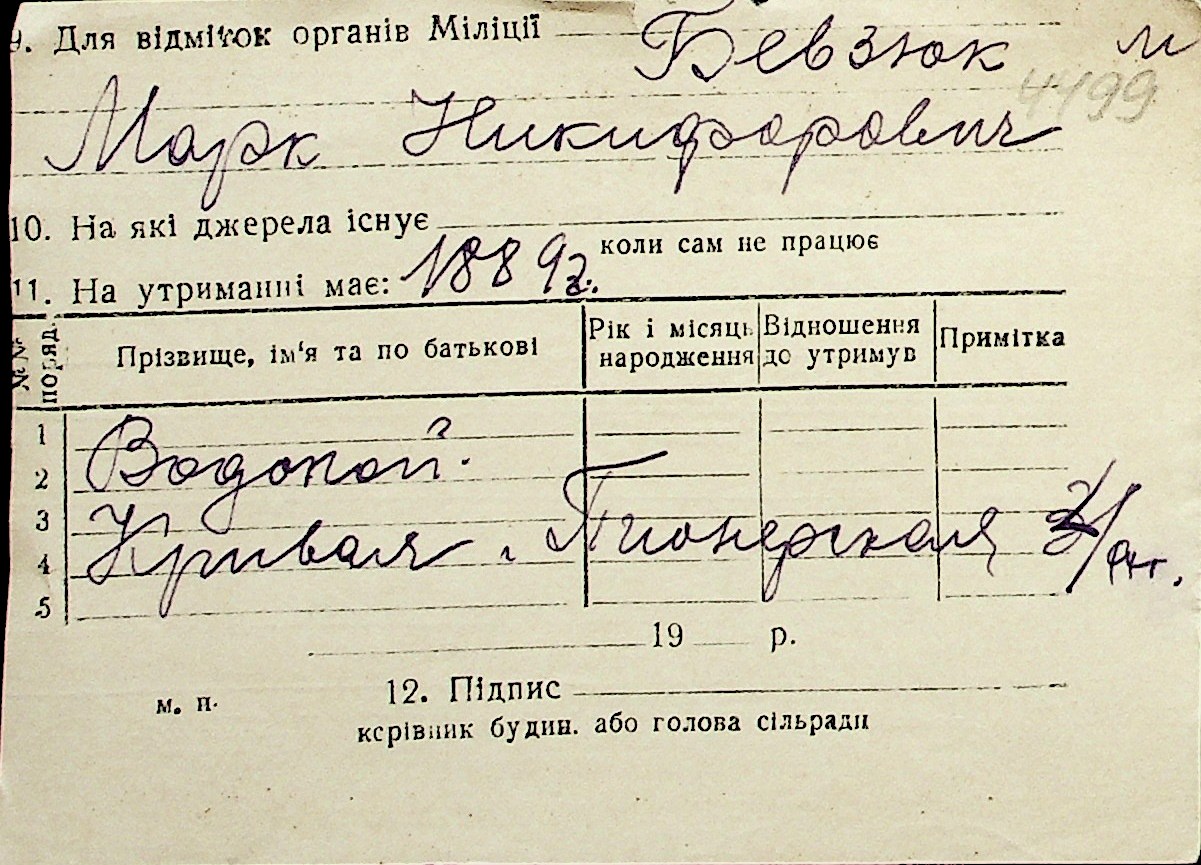 9. Для відміток органів Міліції Бевзюк м
4499
Марк Никифорович
10. На які джерела існує
коли сам не працює
11. На утриманні має: 1889г.
№№ поряд.
Прізвище, ім'я та по батькові
Рік і місяць народження
Відношення до утримув
Примітка
1
2 Водопой.
3
4 Кривая . Пионерская
5
19 р.
м. п. 12. Підпис
керівник будин. або голова сільради